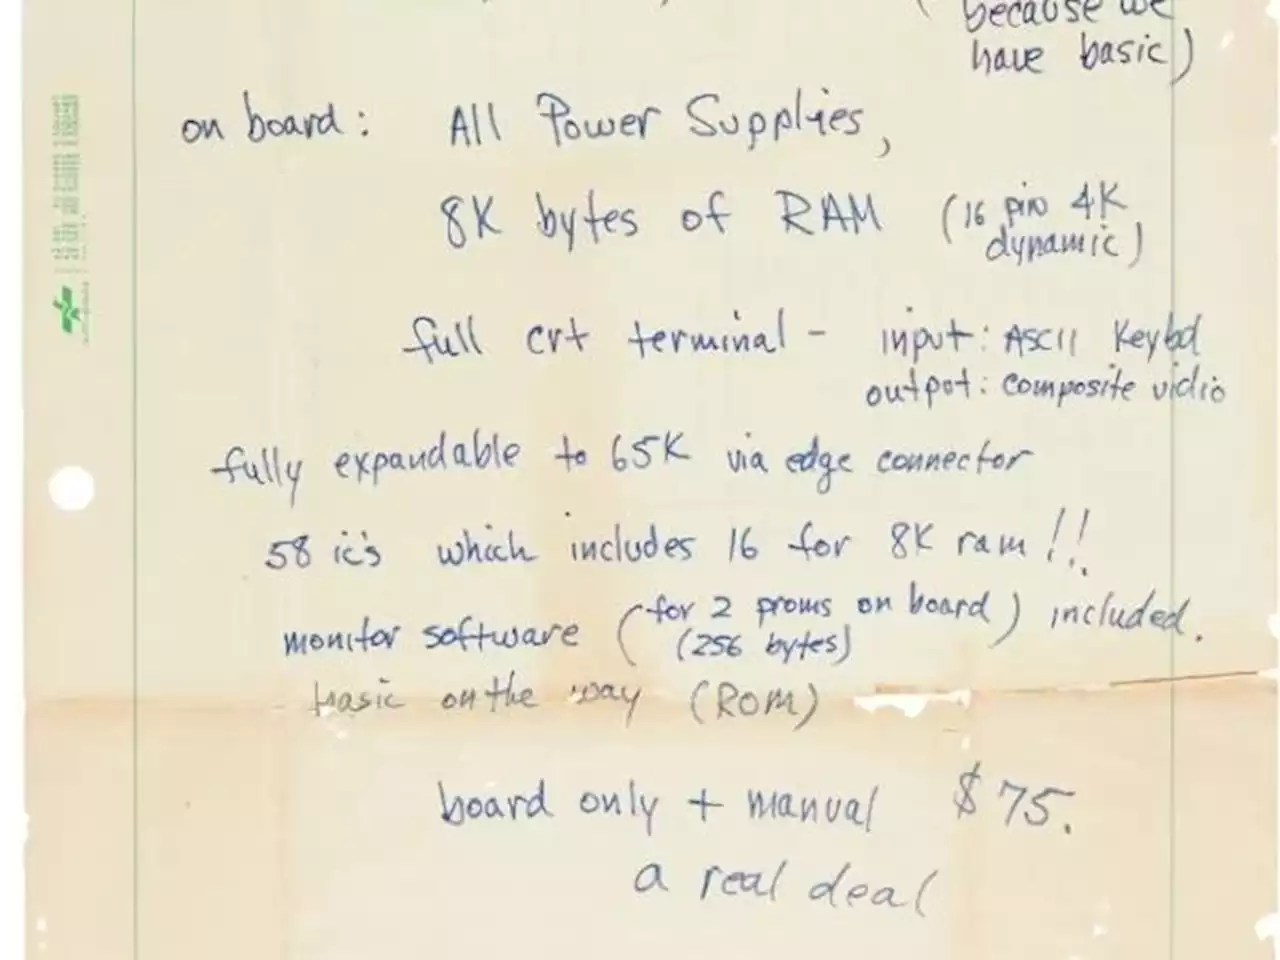 (because we
have basic)
on board: All Power Supplies,
8K bytes of RAM (16 pin 4K
dynamic)
full crt terminal - input: ASCII Keybd
output: composite vidio
fully expandable to 65K via edge connector
58 ic's which includes 16 for 8K ram!!
monitor software (for 2 proms on board) included.
(256 bytes)
basic on the way (ROM)
board only + manual $75.
a real deal